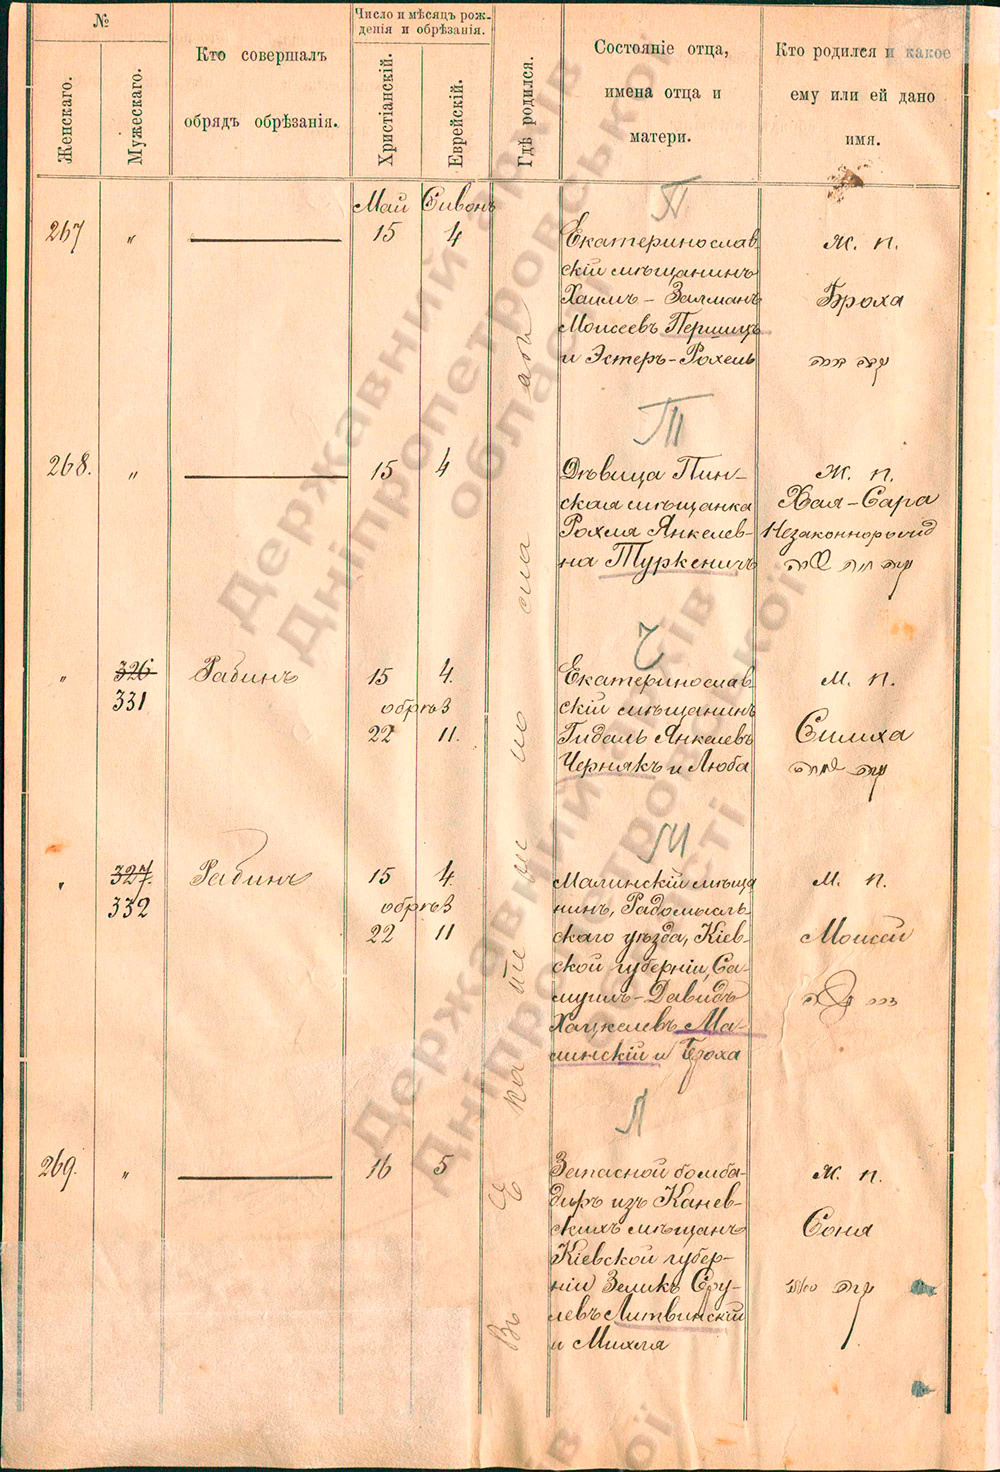 №
Женскаго.
Мужескаго.
Кто совершалъ
обрядъ обрѣзанія.
Число и мѣсяцъ рож-
денія и обрѣзанія.
Христіанскій.
Еврейскій.
Гдѣ родился.
Состояніе отца,
имена отца и
матери.
Кто родился и какое
ему или ей дано
имя.
Въ
Май Сивонъ
П
267 „ 15 4
Екатеринослав-
скій мѣщанинъ
Хаимъ-Залманъ
Моисеевъ Першицъ
и Эстеръ-Рохель
Ж. п.
Броха
Т
268. „ 15 4
Дѣвица Пин-
ская мѣщанка
Рохля Янкелев-
на Туркеничъ
Ж. п.
Хая-Сара
Незаконнорожд
Ч
„ 326
331
Рабинъ
15 4.
обрѣз
22 11.
Екатеринослав-
скій мѣщанинъ
Гидаль Янкелевъ
Чернякъ и Люба
М. п.
Симха
М
„ 327.
332
Рабинъ
15 4.
обрѣз
22 11
Малинскій мѣща
нинъ, Радомысль-
скаго уѣзда, Кіев-
ской губерніи, Са-
муилъ-Давидъ
Хацкелевъ Ма-
линскій и Броха
М. п.
Моисей
Л
269. „ 16 5
Запасной бомба-
диръ изъ Канев-
скихъ мѣщанъ
Кіевской губер-
ніи Зеликъ Сру-
левъ Литвинскій
и Михля
Ж. п.
Соня
Державний архів
Дніпропетровської
області
Державний архів
Дніпропетровської
області